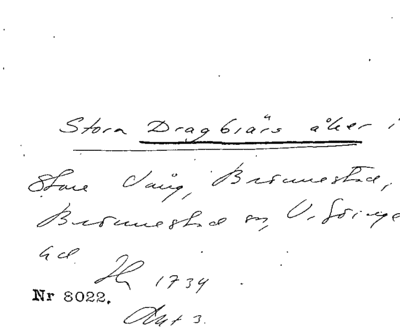 Stora Dragbiärs åker i
Store Vång, Brönnestad,
Brönnestad sn, V. Göinge
hd.
1734
Nr 8022.
Akt 3.